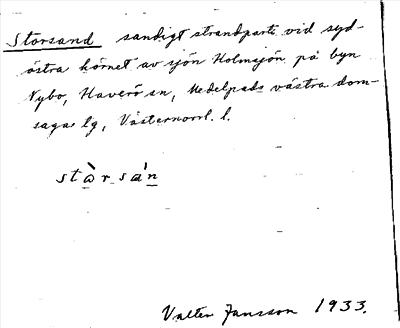 Storsand sandigt strandparti vid syd-
östra hörnet av sjön Holmsjön på byn
Nybo, Haverö sn, Medelpads västra dom-
sagas lg, Västernorrl. l.
stòr sán
Valter Jansson 1933.